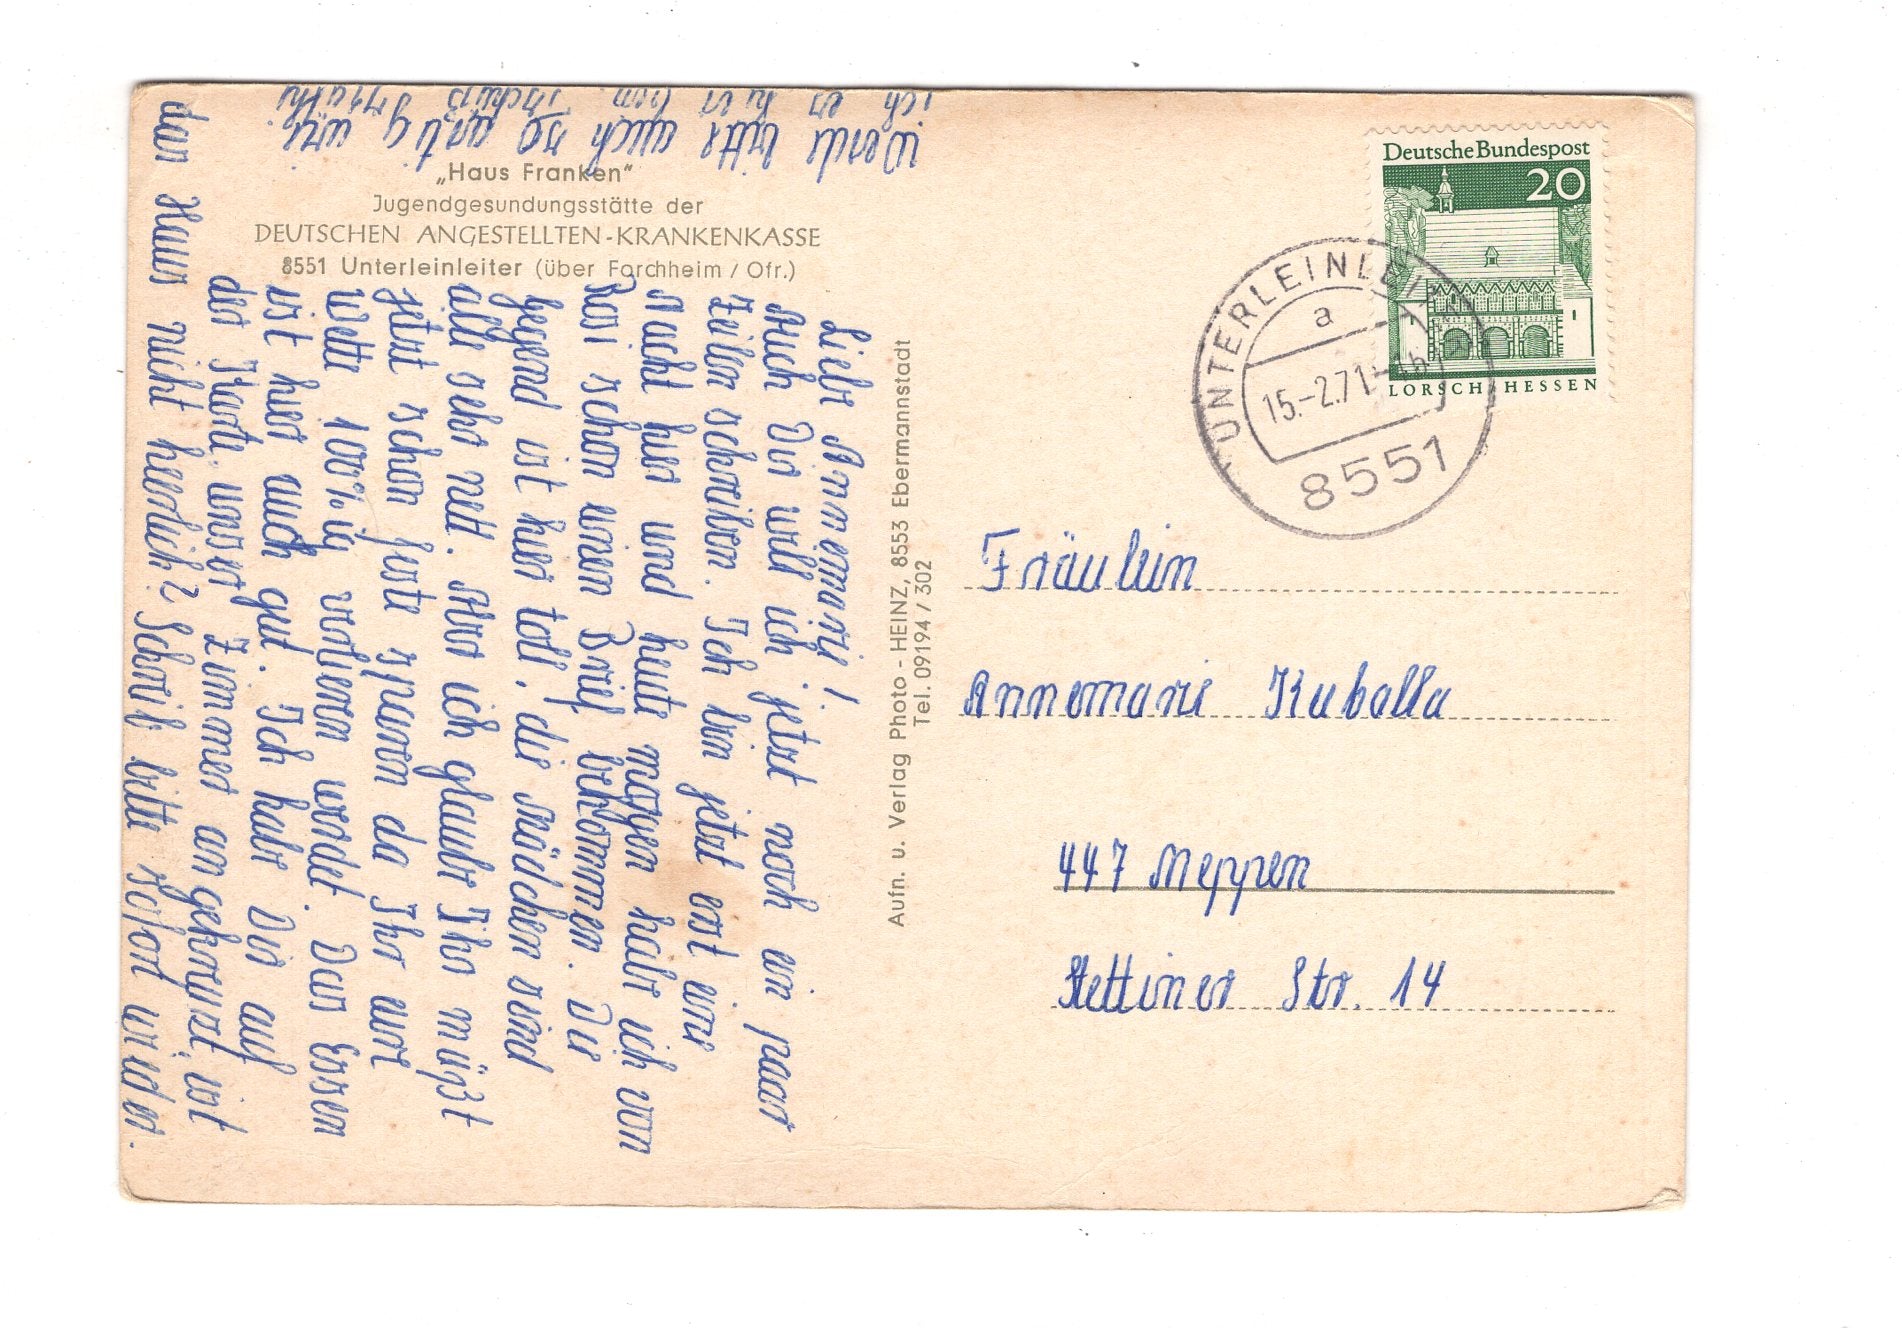 „Haus Franken"
Jugendgesundungsstätte der
DEUTSCHEN ANGESTELLTEN-KRANKENKASSE
8551 Unterleinleiter (über Forchheim / Ofr.)
Liebe Annemarie!
Auch Dir will ich jetzt noch ein paar
Zeilen schreiben. Ich bin jetzt erst eine
Nacht hier und heute morgen habe ich von
Rosi schon einen Brief bekommen. Die
Gegend ist hier toll, die Mädchen sind
alle sehr nett. Aber ich glaube Ihr müßt
jetzt schon feste sparen da Ihr eure
Wette 100%ig verlieren werdet. Das Essen
ist hier auch gut. Ich habe Dir auf
der Karte unser Zimmer angekreuzt, ist
das Haus nicht herrlich? Schreib bitte sofort wieder.
Werde bitte auch so artig wie
ich es hier bin. Tschüß
Aufn. u. Verlag Photo - HEINZ, 8553 Ebermannstadt
Tel. 09194 / 302
Deutsche Bundespost
20
LORSCH HESSEN
UNTERLEINLEITER
a
15.-2.71
8551
Fräulein
Annemarie Kuballa
447 Meppen
Stettiner Str. 14